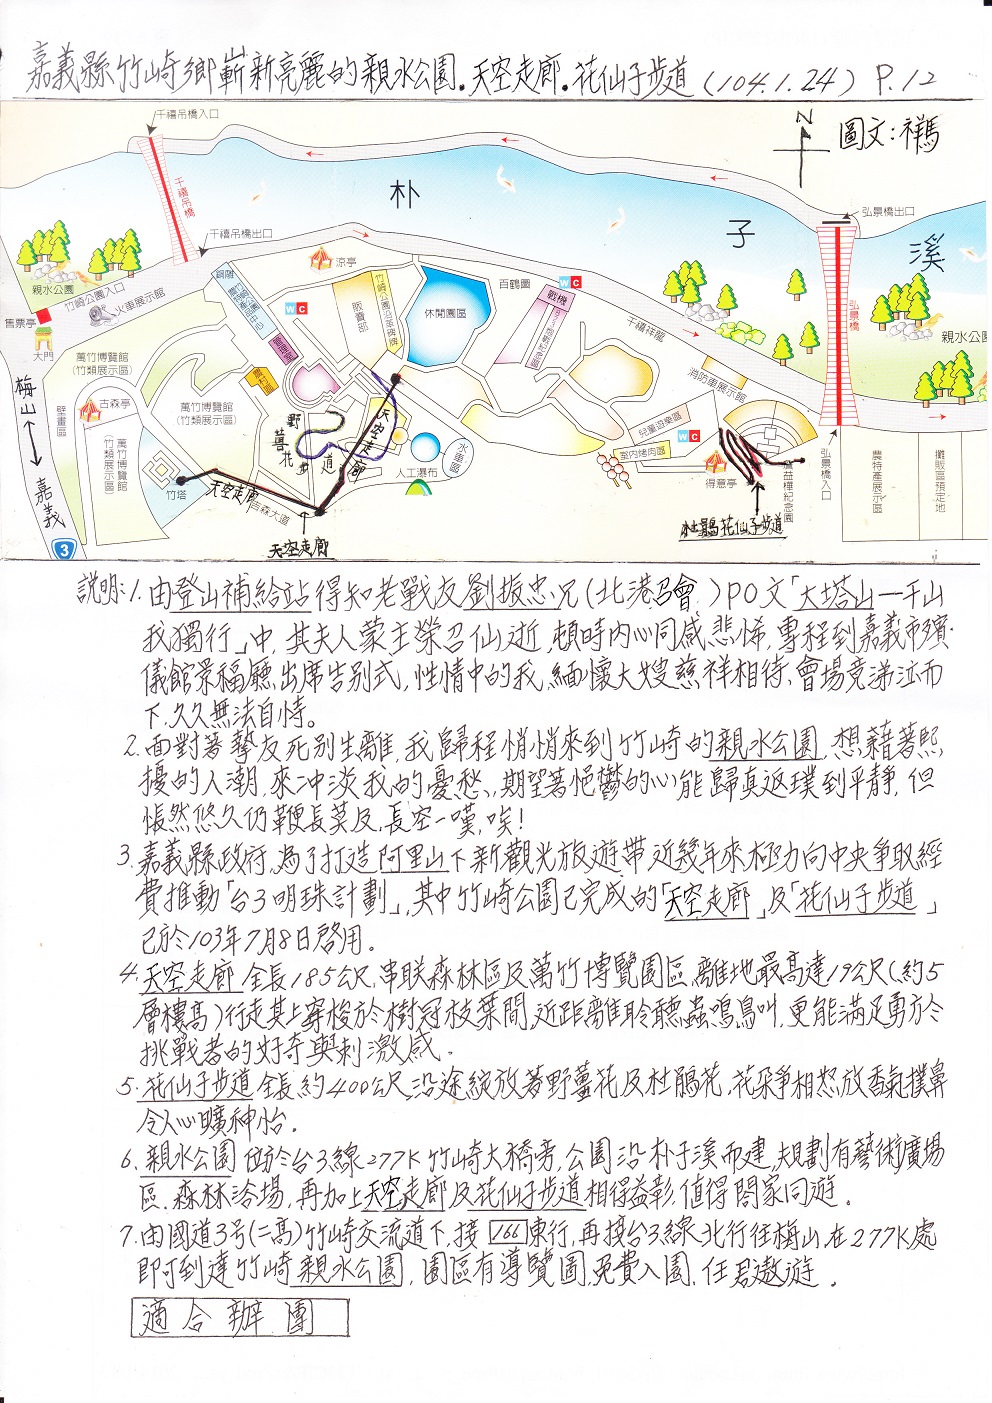 嘉義縣竹崎鄉嶄新亮麗的親水公園.天空走廊.花仙子步道(104.1.24) P.12
千禧吊橋入口
N
圖文:祥馬
朴
千禧吊橋
弘景橋出口
子
千禧吊橋出口
溪
涼亭
親水公園
竹崎公園入口
火車展示館
WC
百鶴園
WC
戰機
休閒園區
竹崎公園沿革碑牌
販賣部
弘景橋
售票亭
大門
千禧祥龍
親水公園
萬竹博覽館
(竹類展示區)
消防車展示館
梅山
古森亭
壁畫區
萬竹博覽館
(竹類展示區)
野薑花步道
天空走廊
兒童遊樂區
WC
水車區
萬竹博覽館
(竹類展示區)
室內烤肉區
人工瀑布
得意亭
弘景橋入口
農特產展示區
攤販區預定地
竹塔
天空走廊
吉森大道
嘉義
杜鵑花仙子步道
天空走廊
3
說明:1.由登山補給站得知老戰友劉振忠兄(北港召會)PO文「大塔山一千山
我獨行」中,其夫人蒙主榮召仙逝,頓時內心同感悲悕,專程到嘉義市殯
儀館景福廳出席告別式,性情中的我,緬懷大嫂慈祥相待,會場竟涕泣而
下,久久無法自恃。
2.面對著摯友死別生離,我歸程悄悄來到竹崎的親水公園,想藉著熙
擾的人潮,來沖淡我的憂愁,期望著悒鬱的心能歸真返璞到平靜,但
悵然悠久仍鞭長莫及,長空一嘆,唉!
3.嘉義縣政府,為了打造阿里山下新觀光旅遊帶近幾年來極力向中央爭取經
費推動「台3明珠計劃」,其中竹崎公園已完成的「天空走廊」及「花仙子步道」
已於103年7月8日啓用。
4.天空走廊全長185公尺,串联森林區及萬竹博覽園區,離地最高達19公尺(約5
層樓高)行走其上穿梭於樹冠枝葉間,近距離聆聽蟲鳴鳥叫,更能滿足勇於
挑戰者的好奇與刺激感。
5.花仙子步道全長約400公尺沿途綻放著野薑花及杜鵑花,花朵爭相怒放香氣撲鼻
令人心曠神怡。
6.親水公園位於台3線277K竹崎大橋旁,公園沿朴子溪而建,規劃有藝術廣場
區.森林浴場,再加上天空走廊及花仙子步道相得益彰,值得閤家同遊。
7.由國道3號(二高)竹崎交流道下,接166東行,再接台3線北行往梅山,在277K處
即可到達竹崎親水公園,園區有導覽圖,免費入園,任君遨遊。
適合辦團